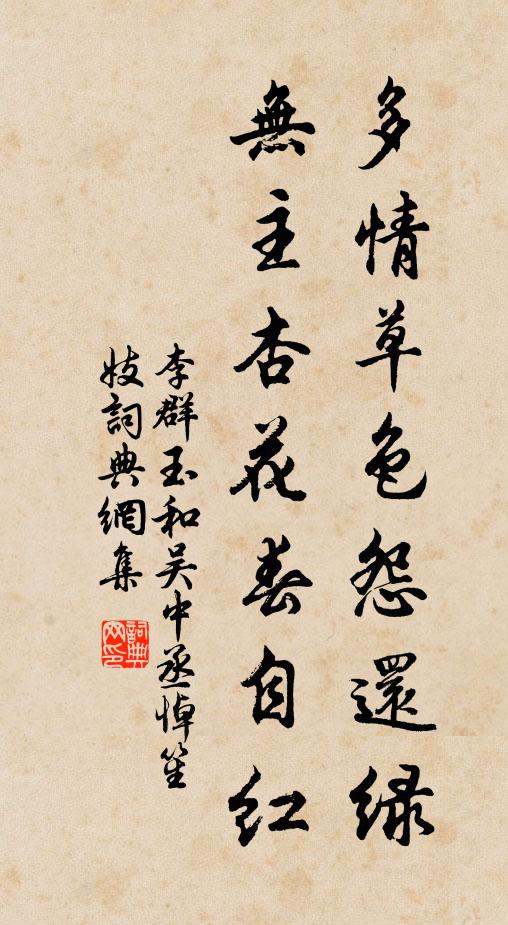 多情草色怨還綠
無主杏花春自紅
李群玉和吴中丞悼笙
妓詞典網集
詞典網印